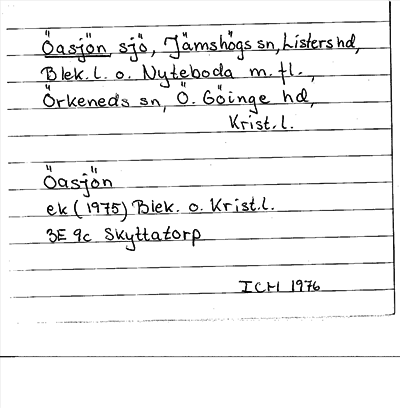 Öasjön sjö, Jämshögs sn, Listers hd,
Blek. l. o. Nyteboda m. fl.,
Örkeneds sn, Ö. Göinge hd,
Krist. l.
Öasjön
ek (1975) Blek. o. Krist. l.
3E 9c Skyttatorp
ICM 1976